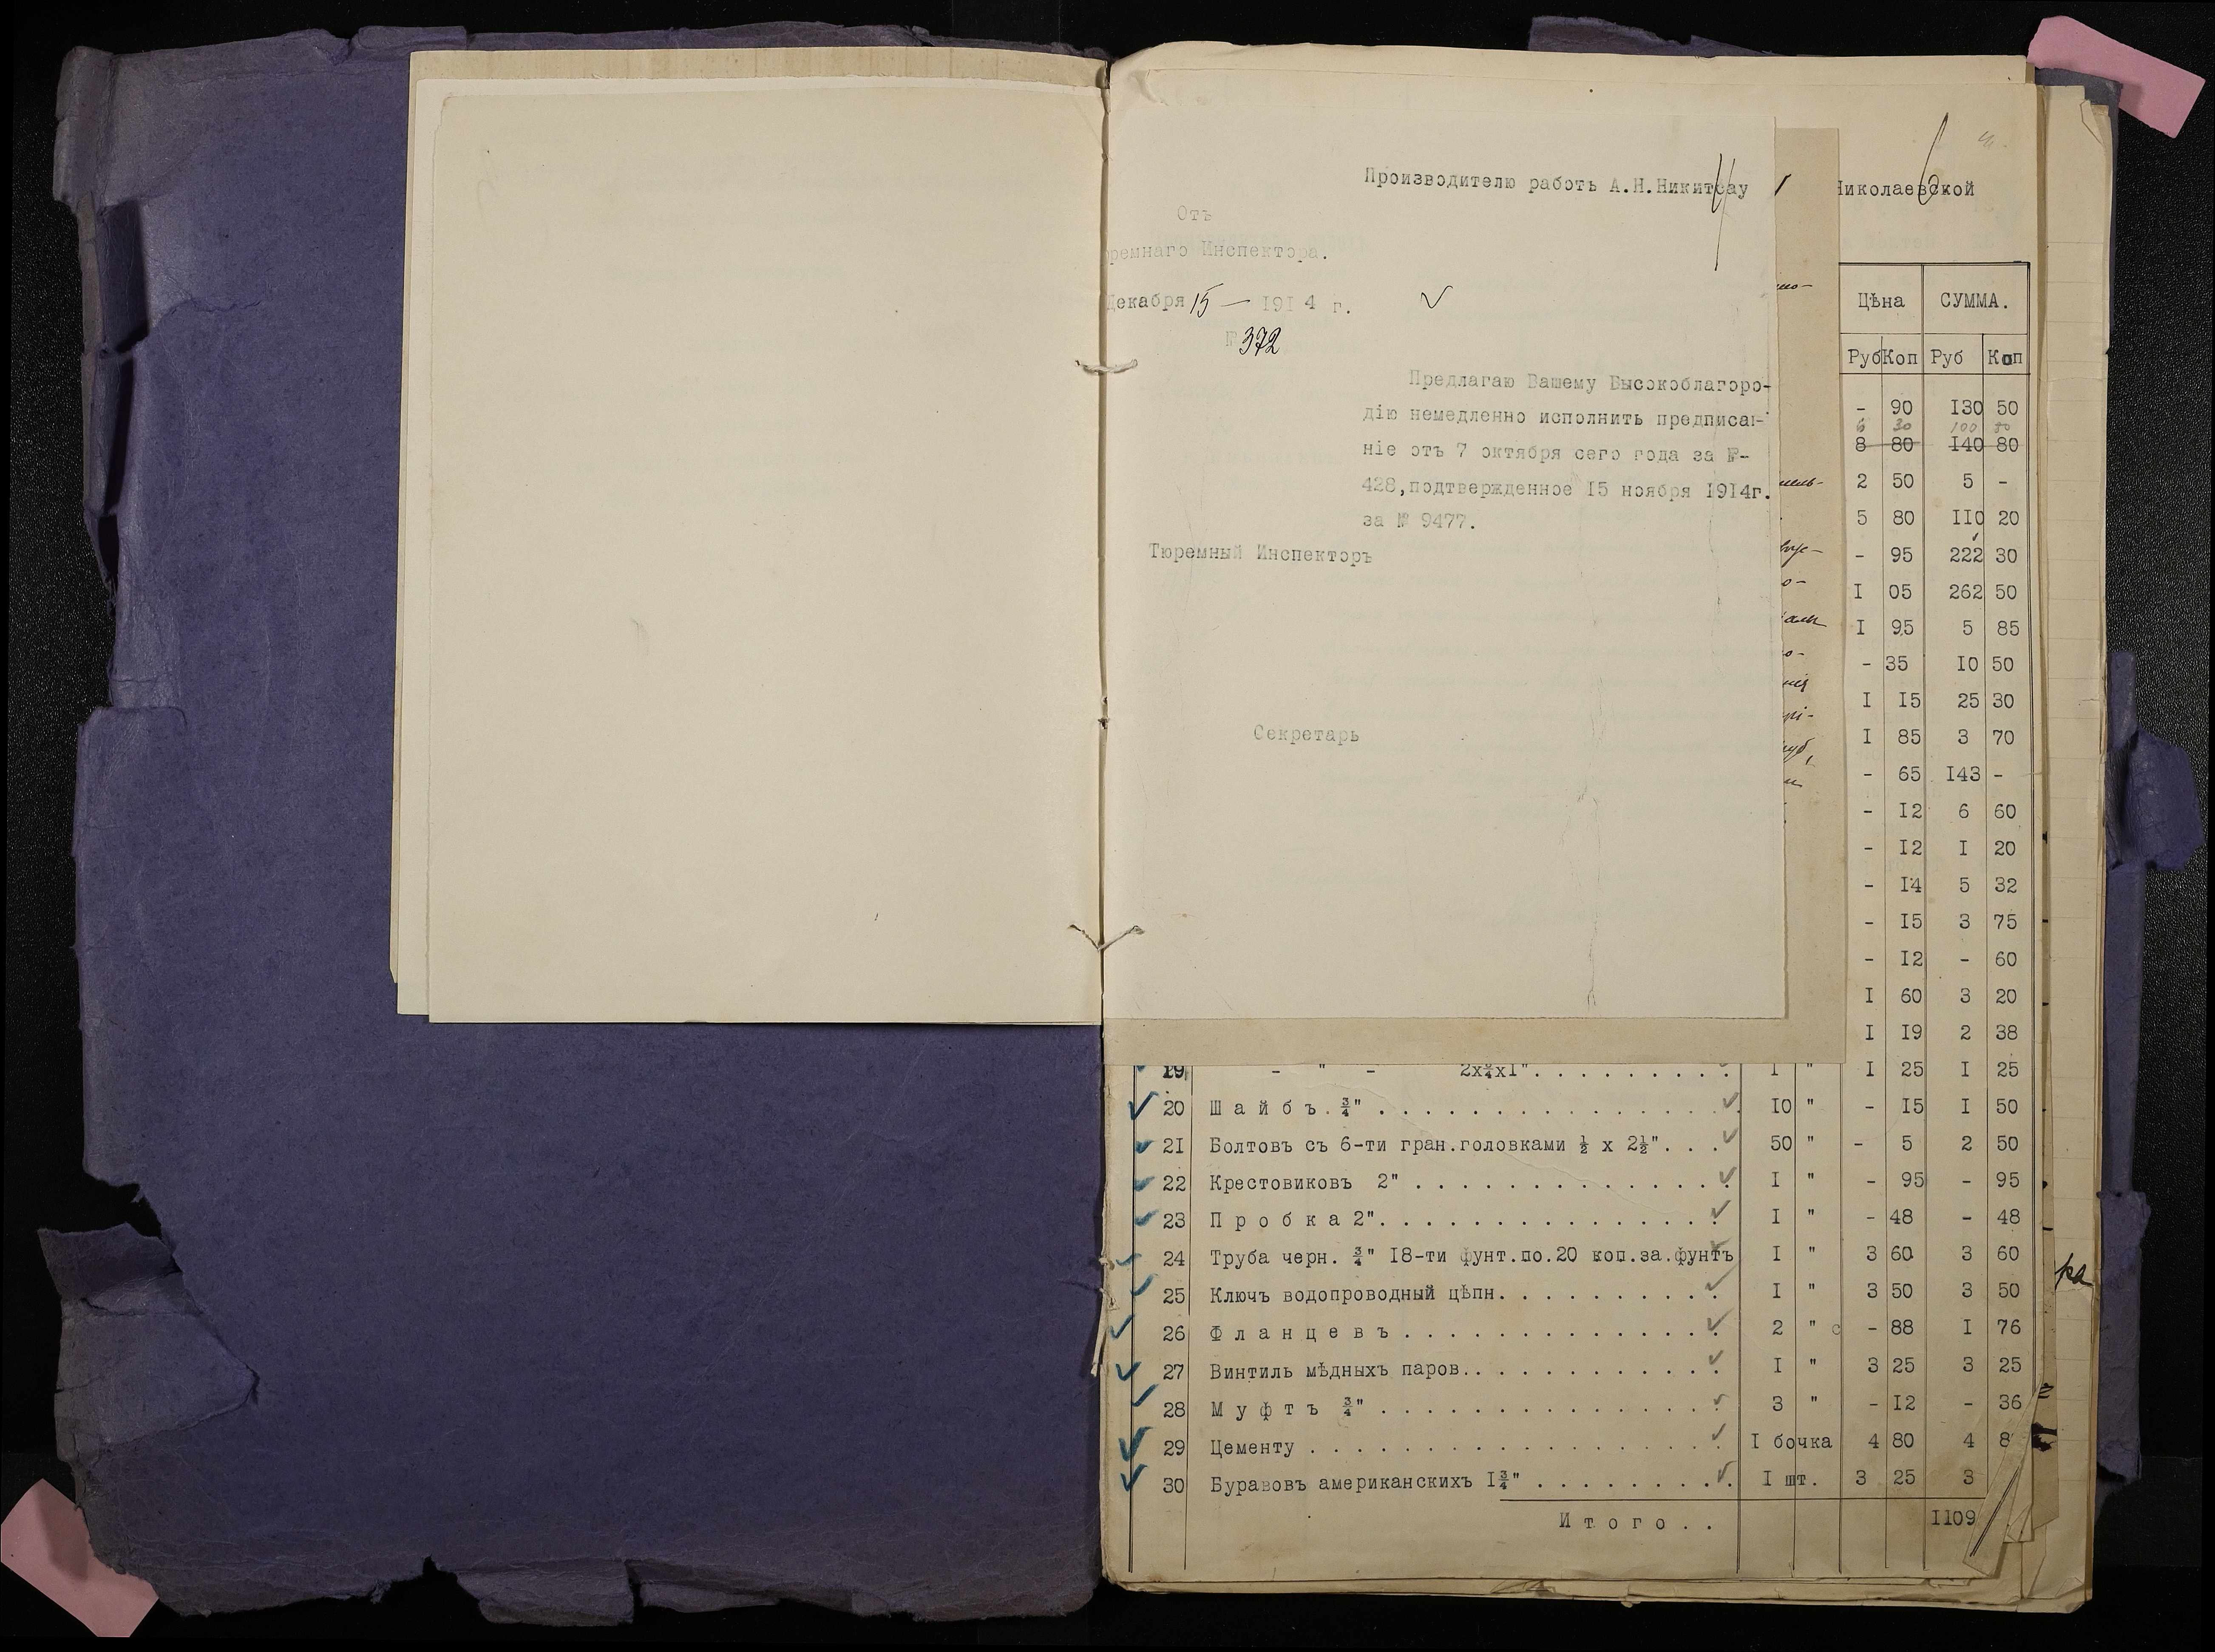 Производителю работъ А.Н.Никитсау
Отъ
ремнаго Инспектора.
Декабря 15 — 1914 г.
№ 372
Предлагаю Вашему Высокоблагоро-
дію немедленно исполнить предписан-
ніе отъ 7 октября сего года за №-
428,подтвержденное 15 ноября 1914г.
за № 9477.
Тюремный Инспекторъ
Секретарь
Николаевской
Цѣна СУММА.
Руб Коп Руб Коп
- 90 130 50
6 30 100 80
8 80 140 80
2 50 5 -
5 80 110 20
- 95 222 30
I 05 262 50
I 95 5 85
- 35 10 50
I 15 25 30
I 85 3 70
- 65 143 -
- 12 6 60
- 12 I 20
- 14 5 32
- 15 3 75
- 12 - 60
I 60 3 20
I 19 2 38
19 - " - 2х¾х1". . . . . . . . . I " I 25 I 25
20 Шайбъ ¾" . . . . . . . . . . . . . . . 10 " - 15 I 50
21 Болтовъ съ 6-ти гран.головками ½ х 2½". . . 50 " - 5 2 50
22 Крестовиковъ 2" . . . . . . . . . . . . . . I " - 95 - 95
23 Пробка 2". . . . . . . . . . . . . . . I " - 48 - 48
24 Труба черн. ¾" 18-ти фунт.по.20 коп.за.фунтъ I " 3 60 3 60
25 Ключъ водопроводный цѣпн. . . . . . . . . . I " 3 50 3 50
26 Фланцевъ . . . . . . . . . . . . . . 2 " с - 88 I 76
27 Винтиль мѣдныхъ паров.. . . . . . . . . . . I " 3 25 3 25
28 Муфтъ ¾" . . . . . . . . . . . . . . . 3 " - 12 - 36
29 Цементу . . . . . . . . . . . . . . . . . I бочка 4 80 4 8
30 Буравовъ американскихъ 1¾" . . . . . . . . . I шт. 3 25 3
Итого . . 1109
ра